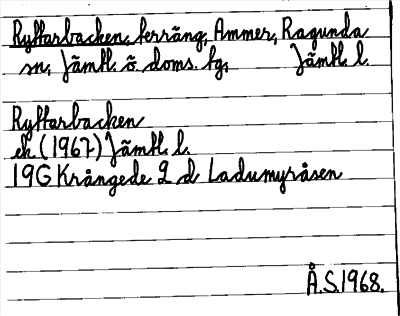 Ryftarbacken, terräng, Ammer, Ragunda
sn, Jämtl. ö. doms. fg, Jämtl. l.
Ryftarbacken
ek. (1967) Jämtl. l.
19G Krångede 2 d Ladumyråsen
Å.S.1968.